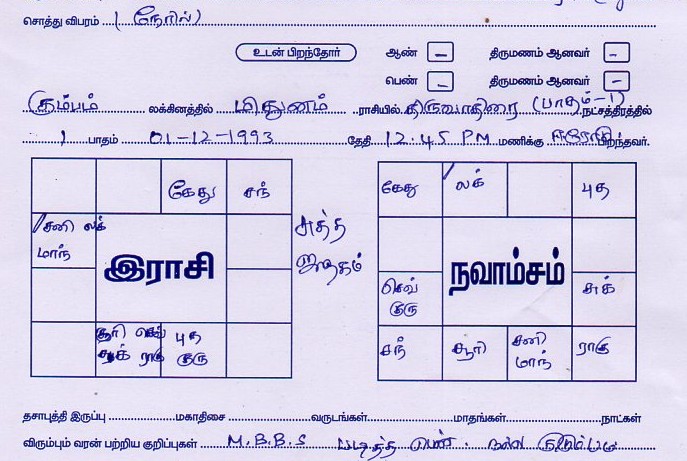 சொத்து விபரம் ( நேரில் )
உடன் பிறந்தோர் ஆண் – திருமணம் ஆனவர் –
பெண் – திருமணம் ஆனவர் –
கும்பம் லக்கினத்தில் மிதுனம் ராசியில் திருவாதிரை (பாதம்-1) நட்சத்திரத்தில்
1 பாதம் 01-12-1993 தேதி 12.45 PM மணிக்கு ஈரோடு பிறந்தவர்.
கேது சந்
சனி லக்
மாந்
இராசி
சூரி செவ் புத
சுக் ராகு குரு
சுத்த
ஜாதகம்
கேது லக் புத
நவாம்சம்
செவ்
குரு
சுக்
சந் சூரி சனி
மாந் ராகு
தசாபுத்தி இருப்பு மகாதிசை வருடங்கள் மாதங்கள் நாட்கள்
விரும்பும் வரன் பற்றிய குறிப்புகள் M.B.B.S படித்த பெண். நல்ல குடும்பம்